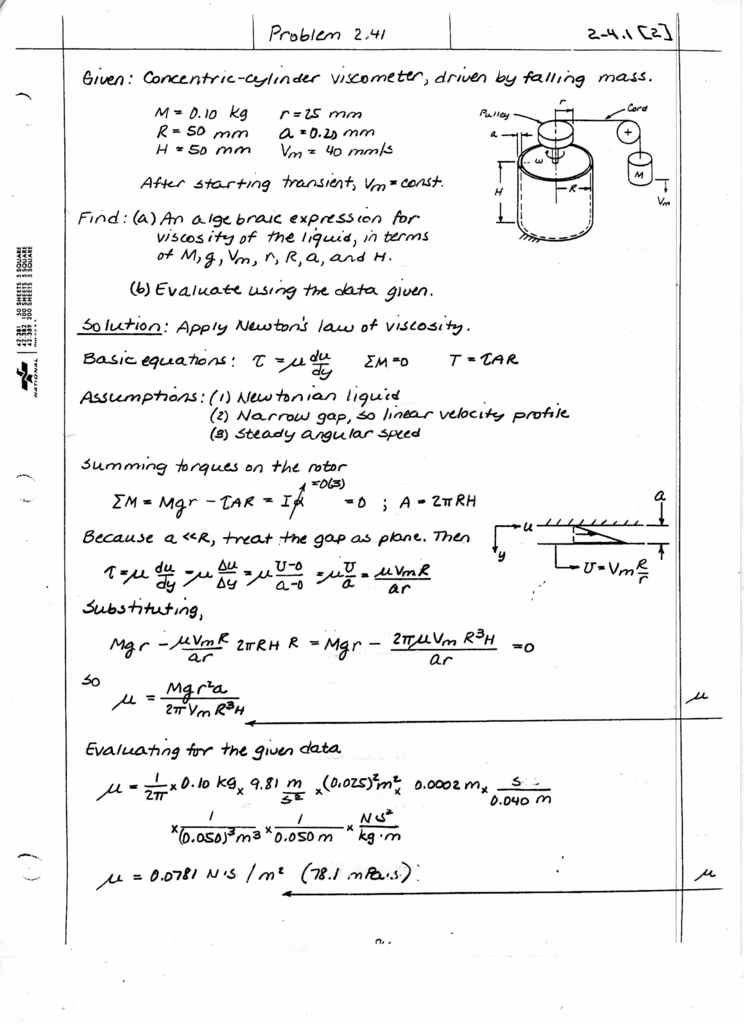 Problem 2.41
2-4.1 [2]
Given: Concentric-cylinder viscometer, driven by falling mass.
M = 0.10 kg r = 25 mm
R = 50 mm a = 0.20 mm
H = 50 mm Vm = 40 mm/s
After starting transient, Vm = const.
Pulley
r
Cord
a
ω
M
H
R
Vm
Find: (a) An algebraic expression for
viscosity of the liquid, in terms
of M, g, Vm, r, R, a, and H.
(b) Evaluate using the data given.
42-381 50 SHEETS 5 SQUARE
42-382 100 SHEETS 5 SQUARE
42-389 200 SHEETS 5 SQUARE
NATIONAL
Solution: Apply Newton's law of viscosity.
Basic equations: τ = μ du/dy ΣM = 0 T = τAR
Assumptions: (1) Newtonian liquid
(2) Narrow gap, so linear velocity profile
(3) Steady angular speed
Summing torques on the rotor
=0(3)
ΣM = Mgr - τAR = Iα = 0 ; A = 2πRH
Because a << R, treat the gap as plane. Then
a
u
y
U = Vm R/r
τ = μ du/dy = μ Δu/Δy = μ (U-0)/(a-0) = μ U/a = μVmR/ar
Substituting,
Mgr - μVmR/ar 2πRH R = Mgr - 2πμVm R³H/ar = 0
So
μ = Mgr²a/2πVmR³H
μ
Evaluating for the given data
μ = 1/2π × 0.10 kg × 9.81 m/s² × (0.025)² m² × 0.0002 m × s/0.040 m
× 1/(0.050)³ m³ × 1/0.050 m × N·s²/kg·m
μ = 0.0781 N·s/m² (78.1 mPa·s)
μ